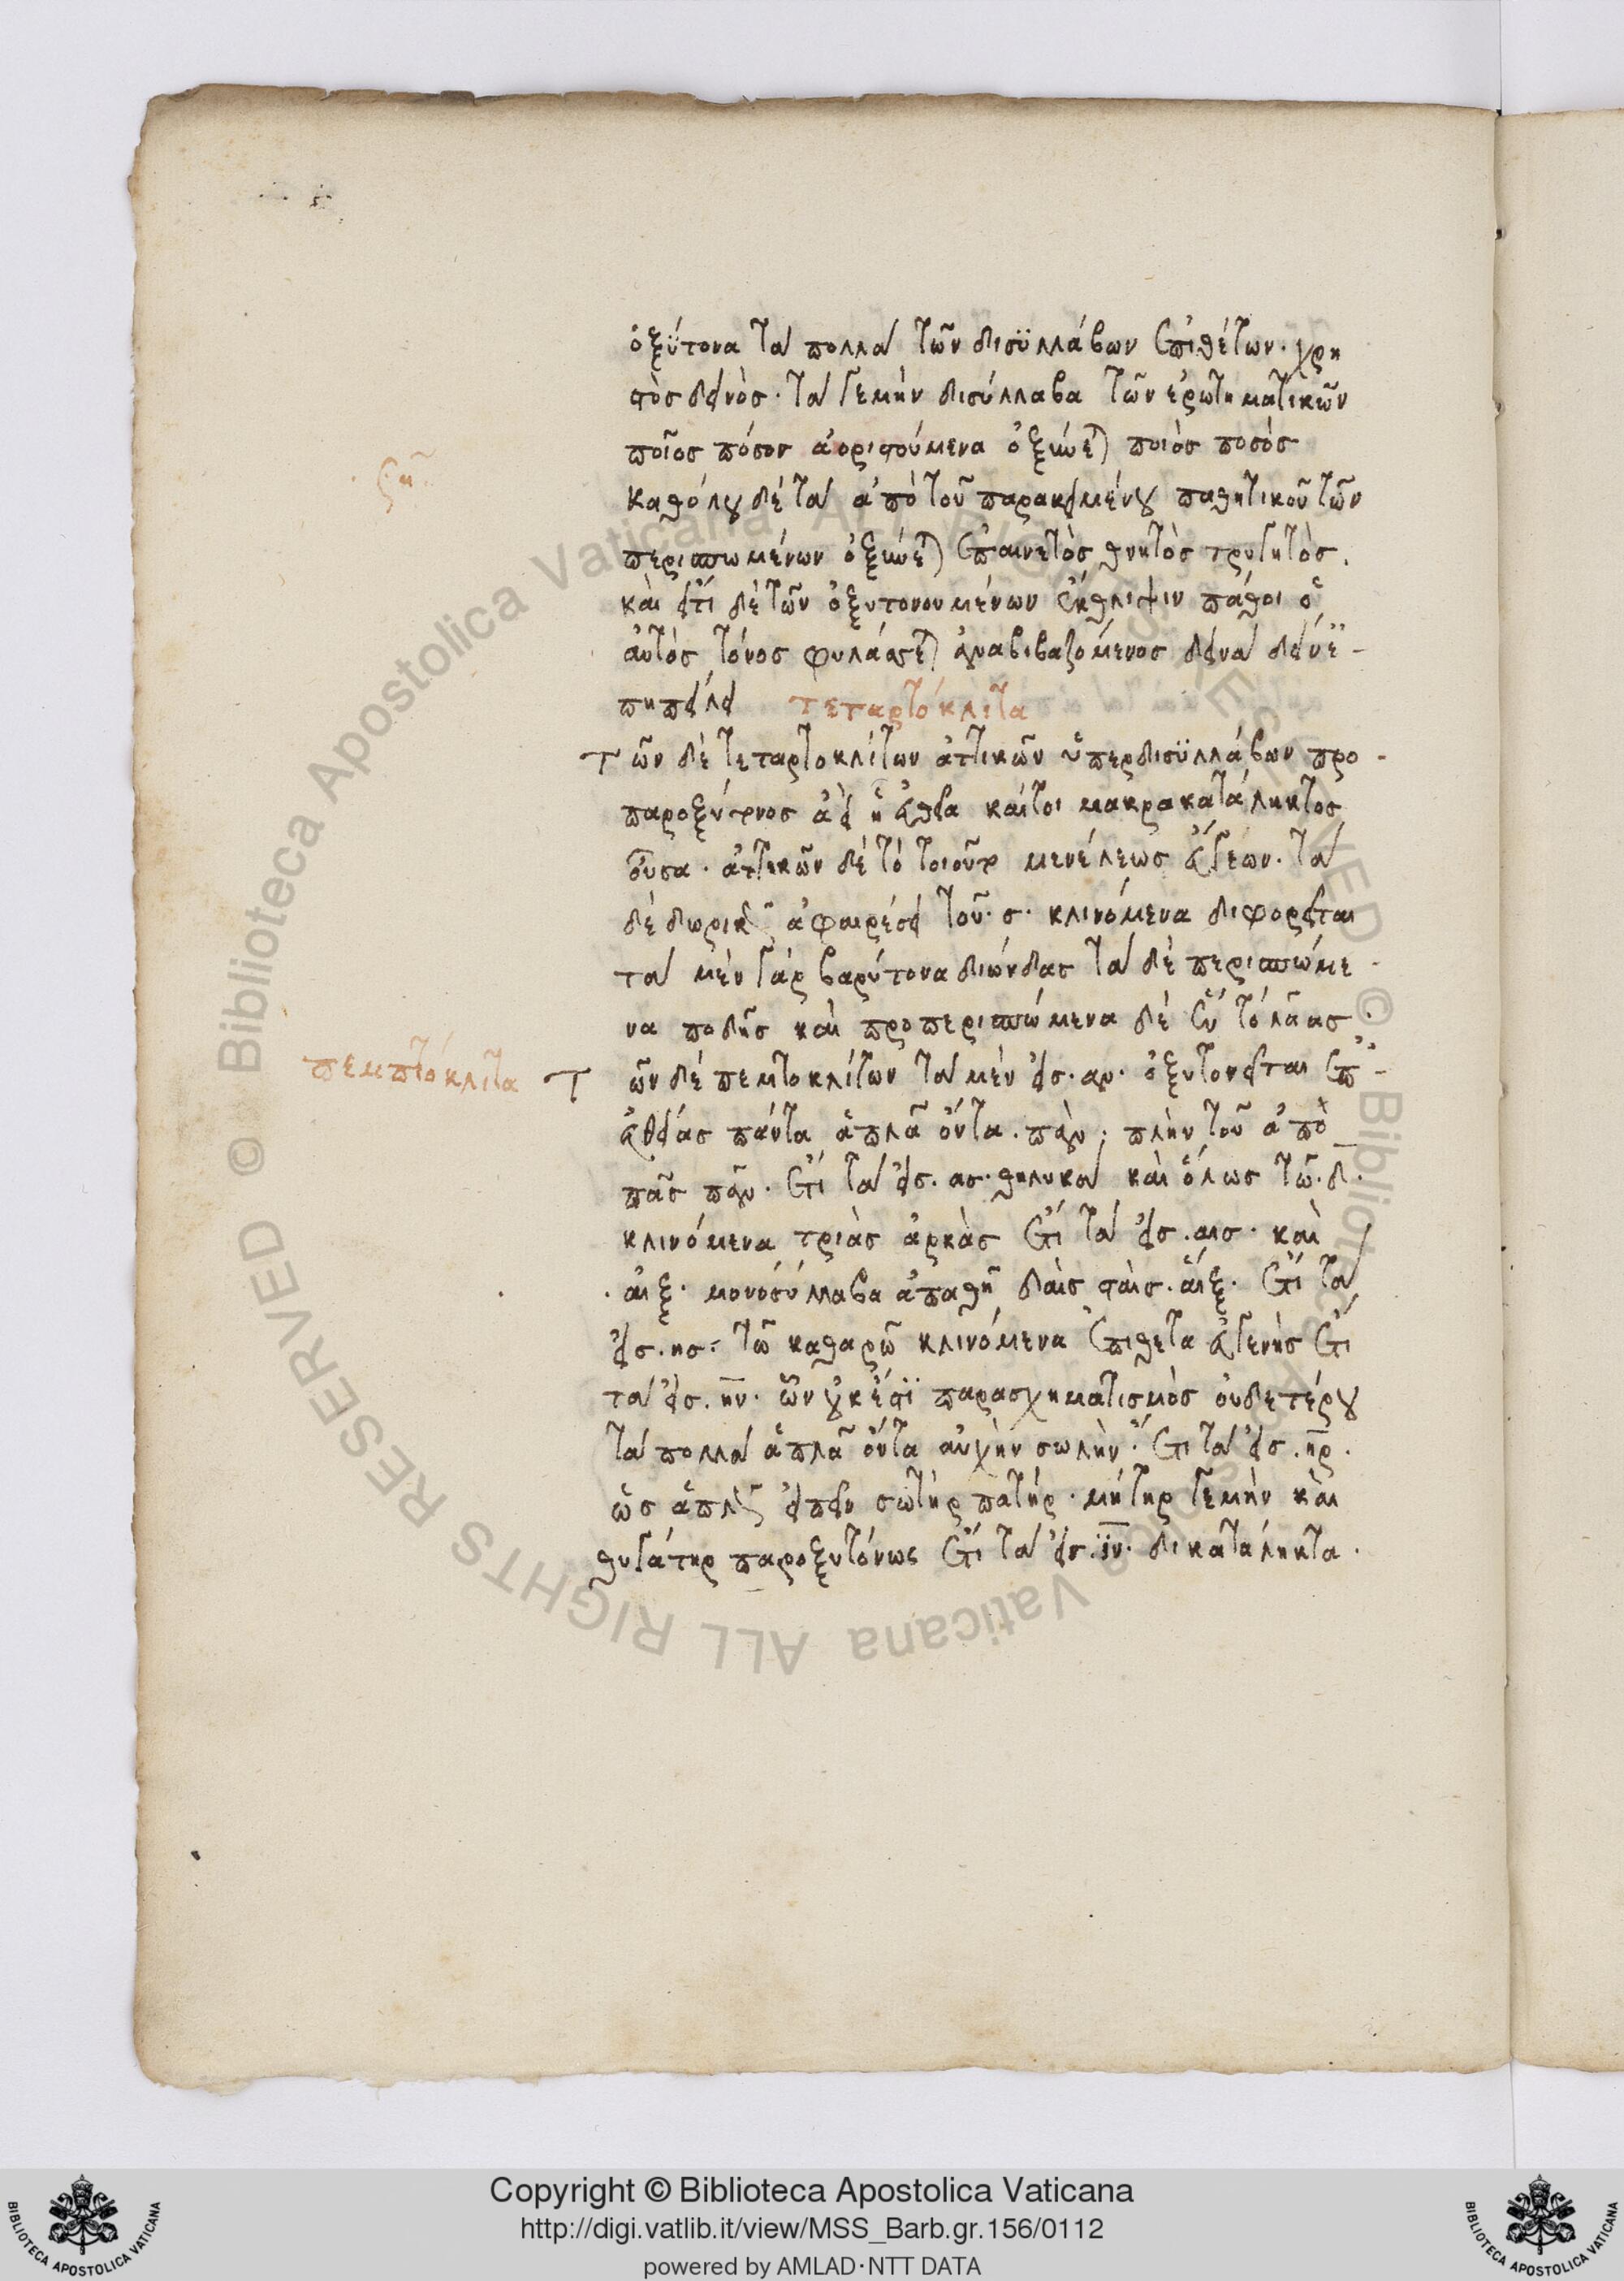 ὀξύτονα τὰ πολλὰ τῶν δισϋλλάβων ἐπιθέτων· χρη
στὸς δεινὸς· τὰ γεμὴν δισύλλαβα τῶν ἐρωτηματικῶν
ποῖος πόσος ἀοριστούμενα ὀξύνεται ποιὸς ποσός
ση
καθόλου δὲ τὰ ἀπὸ τοῦ παρακειμένου παθητικοῦ τῶν
περισπωμένων ὀξύνεται ἐπαινετὸς θνητὸς τρυγητὸς.
κἂν ἔτι δὲ τῶν ὀξυτονουμένων ἔκθλιψιν πάθοι ὁ
αὐτὸς τόνος φυλάσσεται ἀναβιβαζόμενος δεινὰ δείν ἔ-
πηπείλει τεταρτόκλιτα
Τῶν δὲ τεταρτοκλίτων ἀττικῶν ὑπερδισϋλλάβων προ-
παροξύτονος ἀεὶ ἡ εὐθεῖα καίτοι μακρακατάληκτος
οὖσα· ἀττικῶν δὲ τὸ τοιοῦτο μενέλεως εὔγεων. τὰ
δὲ δωρικῶς ἀφαιρέσει τοῦ· σ· κλινόμενα διφορεῖται
τὰ μὲν γὰρ βαρύτονα διώνδας τὰ δὲ περισπώμε-
να ποδῆς καὶ προπερισπώμενα δὲ ἓν τὸ λᾶας·
πεμπτόκλιτα
Τῶν δὲ πεμτοκλίτων τὰ μὲν εἰς· αν· ὀξυτονεῖται ἐπ-
εὐθείας πάντα ἁπλᾶ ὄντα. πὰν· πλὴν τοῦ ἀπὸ
πᾶς πᾶν· ἔτι τὰ εἰς. ας· θηλυκὰ καὶ ὅλως τῶ. δ.
κλινόμενα τριὰς ἀρκὰς ἔτι τὰ εἰς. αις· καὶ
·αιξ· μονοσύλλαβα ἀπαθῆ δαὶς σταὶς. αἴξ. ἔτι τὰ
εἰς. ης· τῶ καθαρῶ κλινόμενα ἐπίθετα εὐγενὴς ἔτι
τὰ εἰς. ην· ὧν οὐκ ἔστι παρασχηματισμὸς οὐδετέρου
τὰ πολλὰ ἁπλᾶ ὄντα αὐχὴν σωλὴν· ἔτι τὰ εἰς. ηρ.
ὡς ἁπλῶς εἰπεῖν σωτὴρ πατήρ· μήτηρ γεμὴν καὶ
θυγάτηρ παροξυτόνως ἔτι τὰ εἰς. ϊν· δικατάληκτα.
Copyright © Biblioteca Apostolica Vaticana
http://digi.vatlib.it/view/MSS_Barb.gr.156/0112
powered by AMLAD·NTT DATA
© Biblioteca Apostolica Vaticana ALL RIGHTS RESERVED
BIBLIOTECA APOSTOLICA VATICANA
BIBLIOTECA APOSTOLICA VATICANA